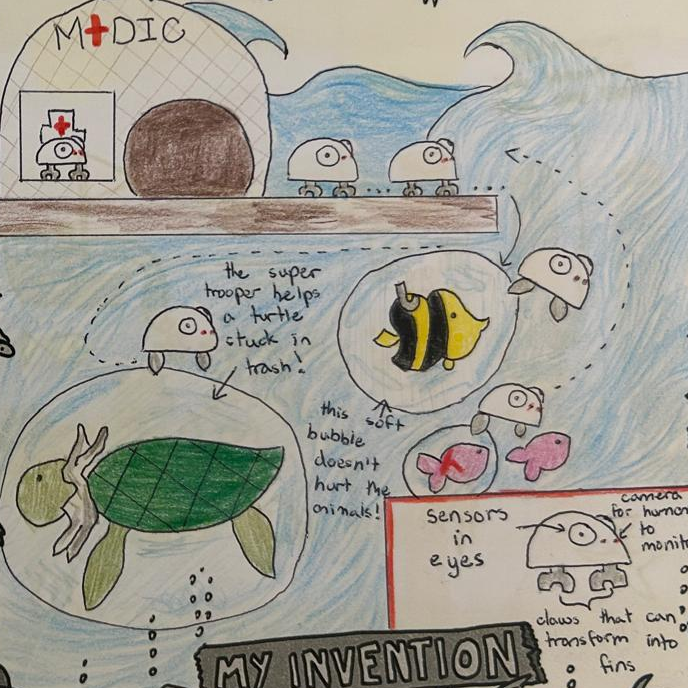 MEDIC
the super
trooper helps
a turtle
stuck in
trash!
this soft
bubble
doesn't
hurt the
animals!
sensors
in
eyes
camera
for human
to
monit
claws that can
transform into
fins
MY INVENTION